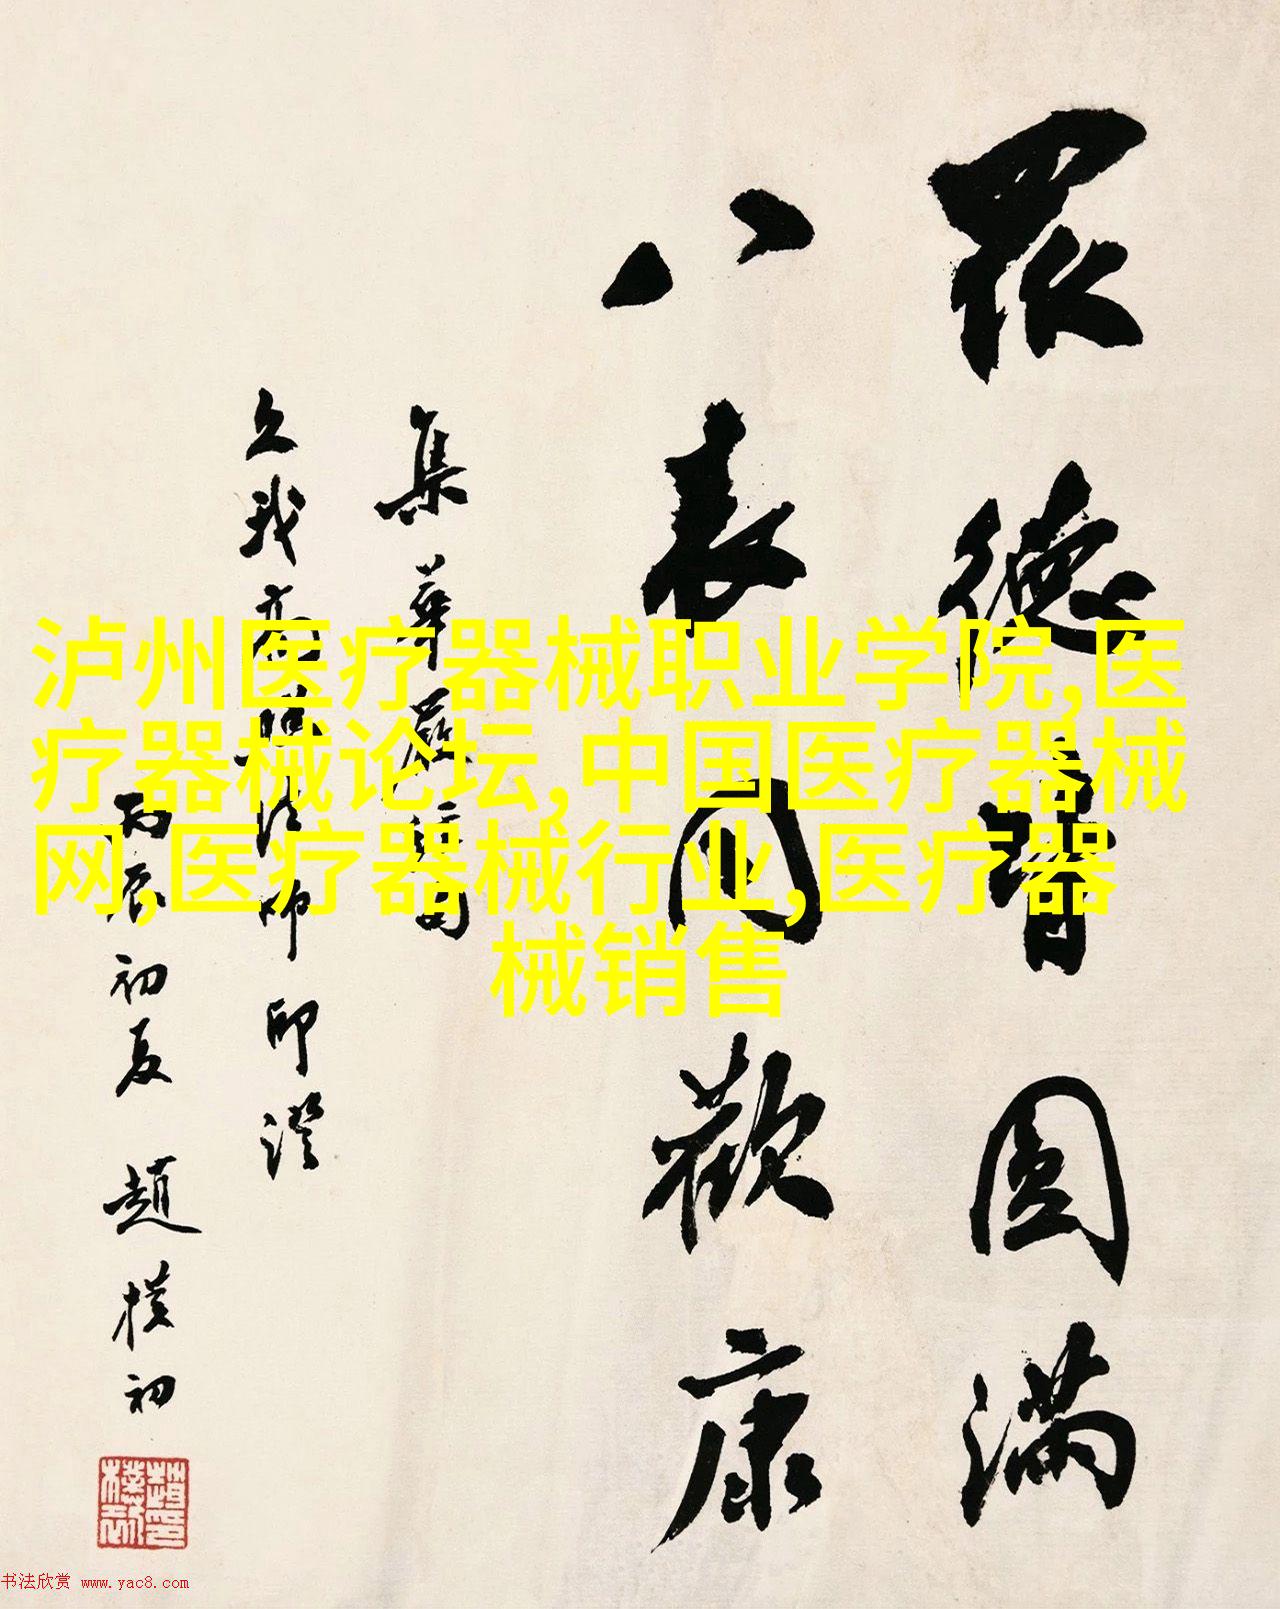 眾德圓滿
八表同歡康
集華嚴句
久我高法師印證
丙辰初夏 趙樸初
泸州医疗器械职业学院,医
疗器械论坛,中国医疗器械
网,医疗器械行业,医疗器
械销售
书法欣赏 www.yac8.com